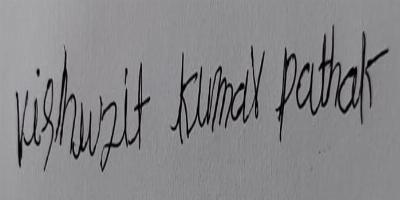 Vishwzit kumar pathak